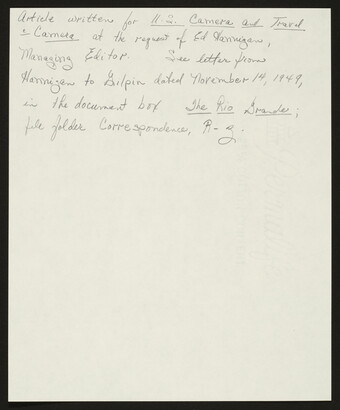 Article written for U.S. Camera and Travel
& Camera at the request of Ed Hannigan,
Managing Editor. See letter from
Hannigan to Gilpin dated November 14, 1949,
in the document box The Rio Grande;
file folder Correspondence, R-Z.